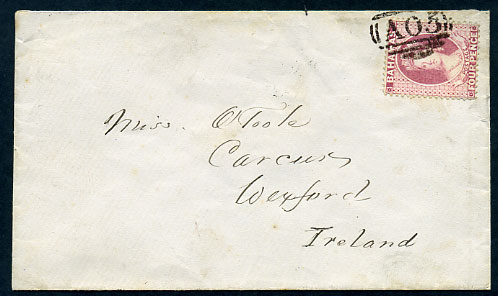 A05
BAHA
FOUR PENCE
Miss. O'Toole
Carcur
Wexford
Ireland